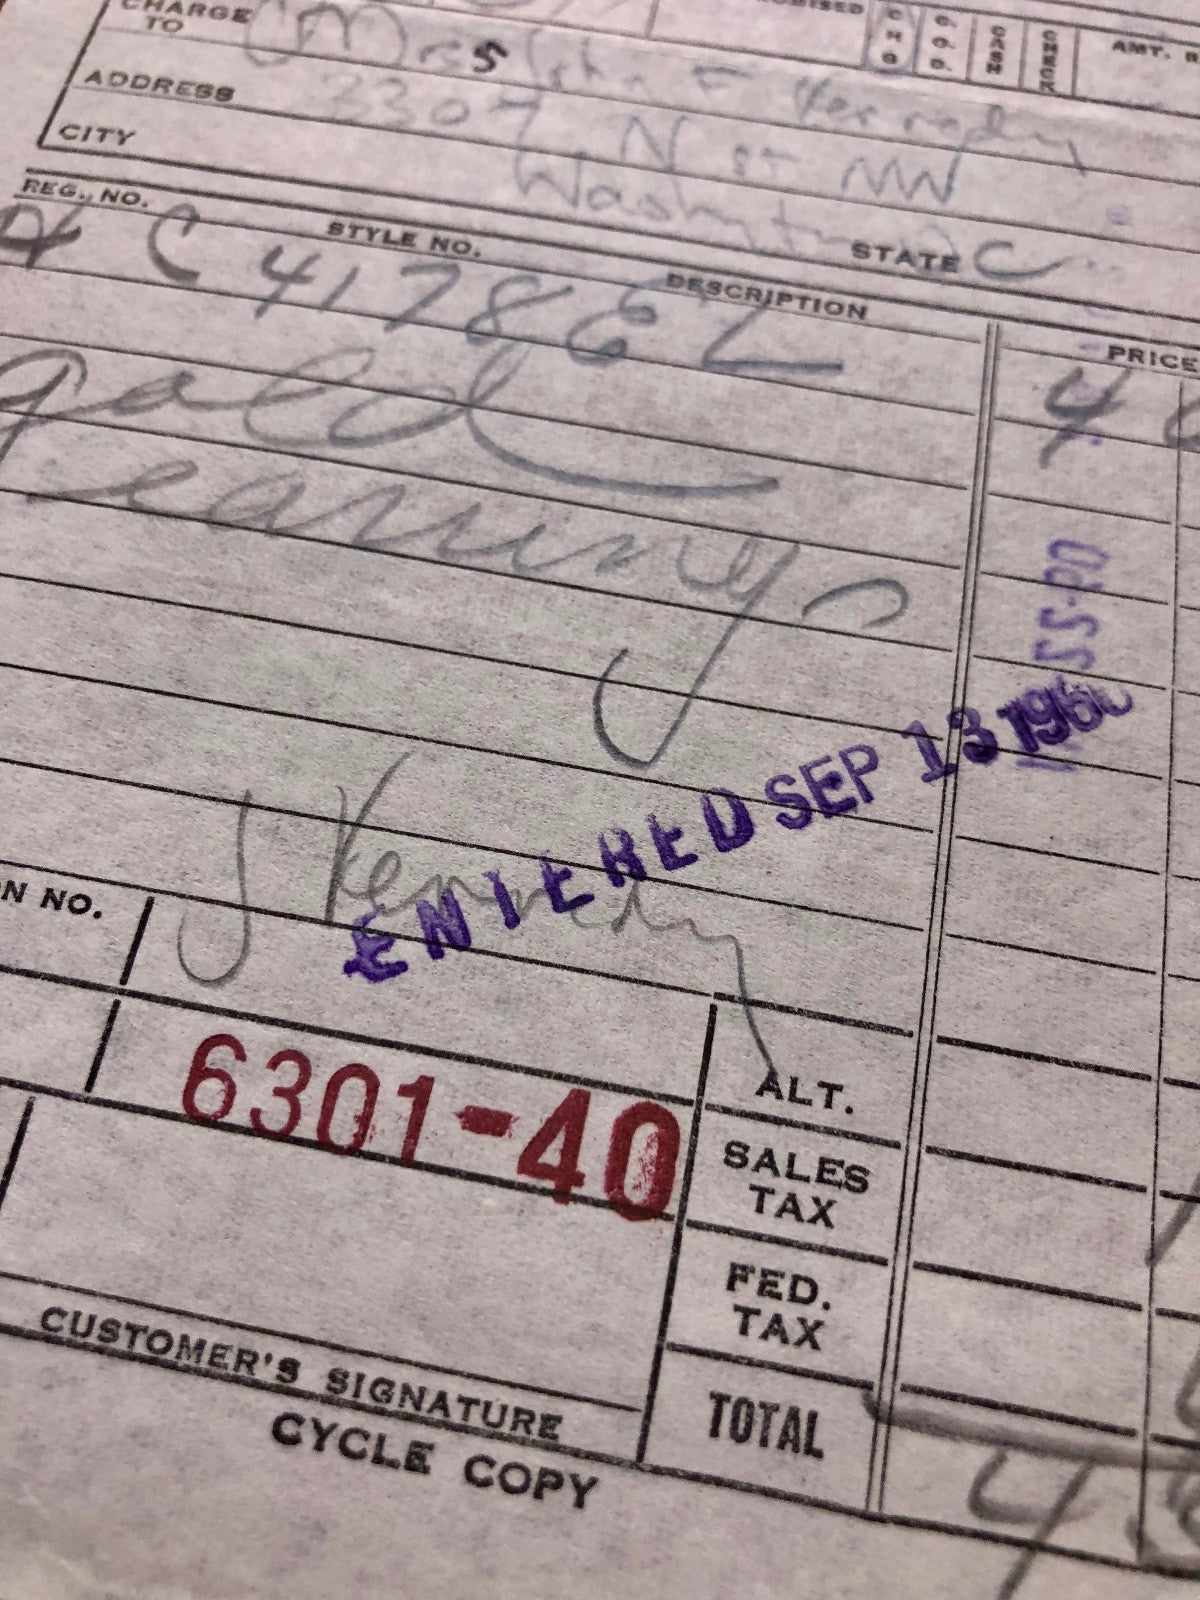 CHARGE TO Mrs John F Kennedy
CHG C.O.D. CASH CHECK AMT.
ADDRESS 3307 N St NW
CITY Washington STATE DC
REG. NO. STYLE NO. DESCRIPTION PRICE
C 4178 EL 4
gold
earrings
SS-PD
ENTERED SEP 13 1960
J Kennedy
NO.
6301-40
ALT.
SALES TAX
FED. TAX
TOTAL 4
CUSTOMER'S SIGNATURE
CYCLE COPY